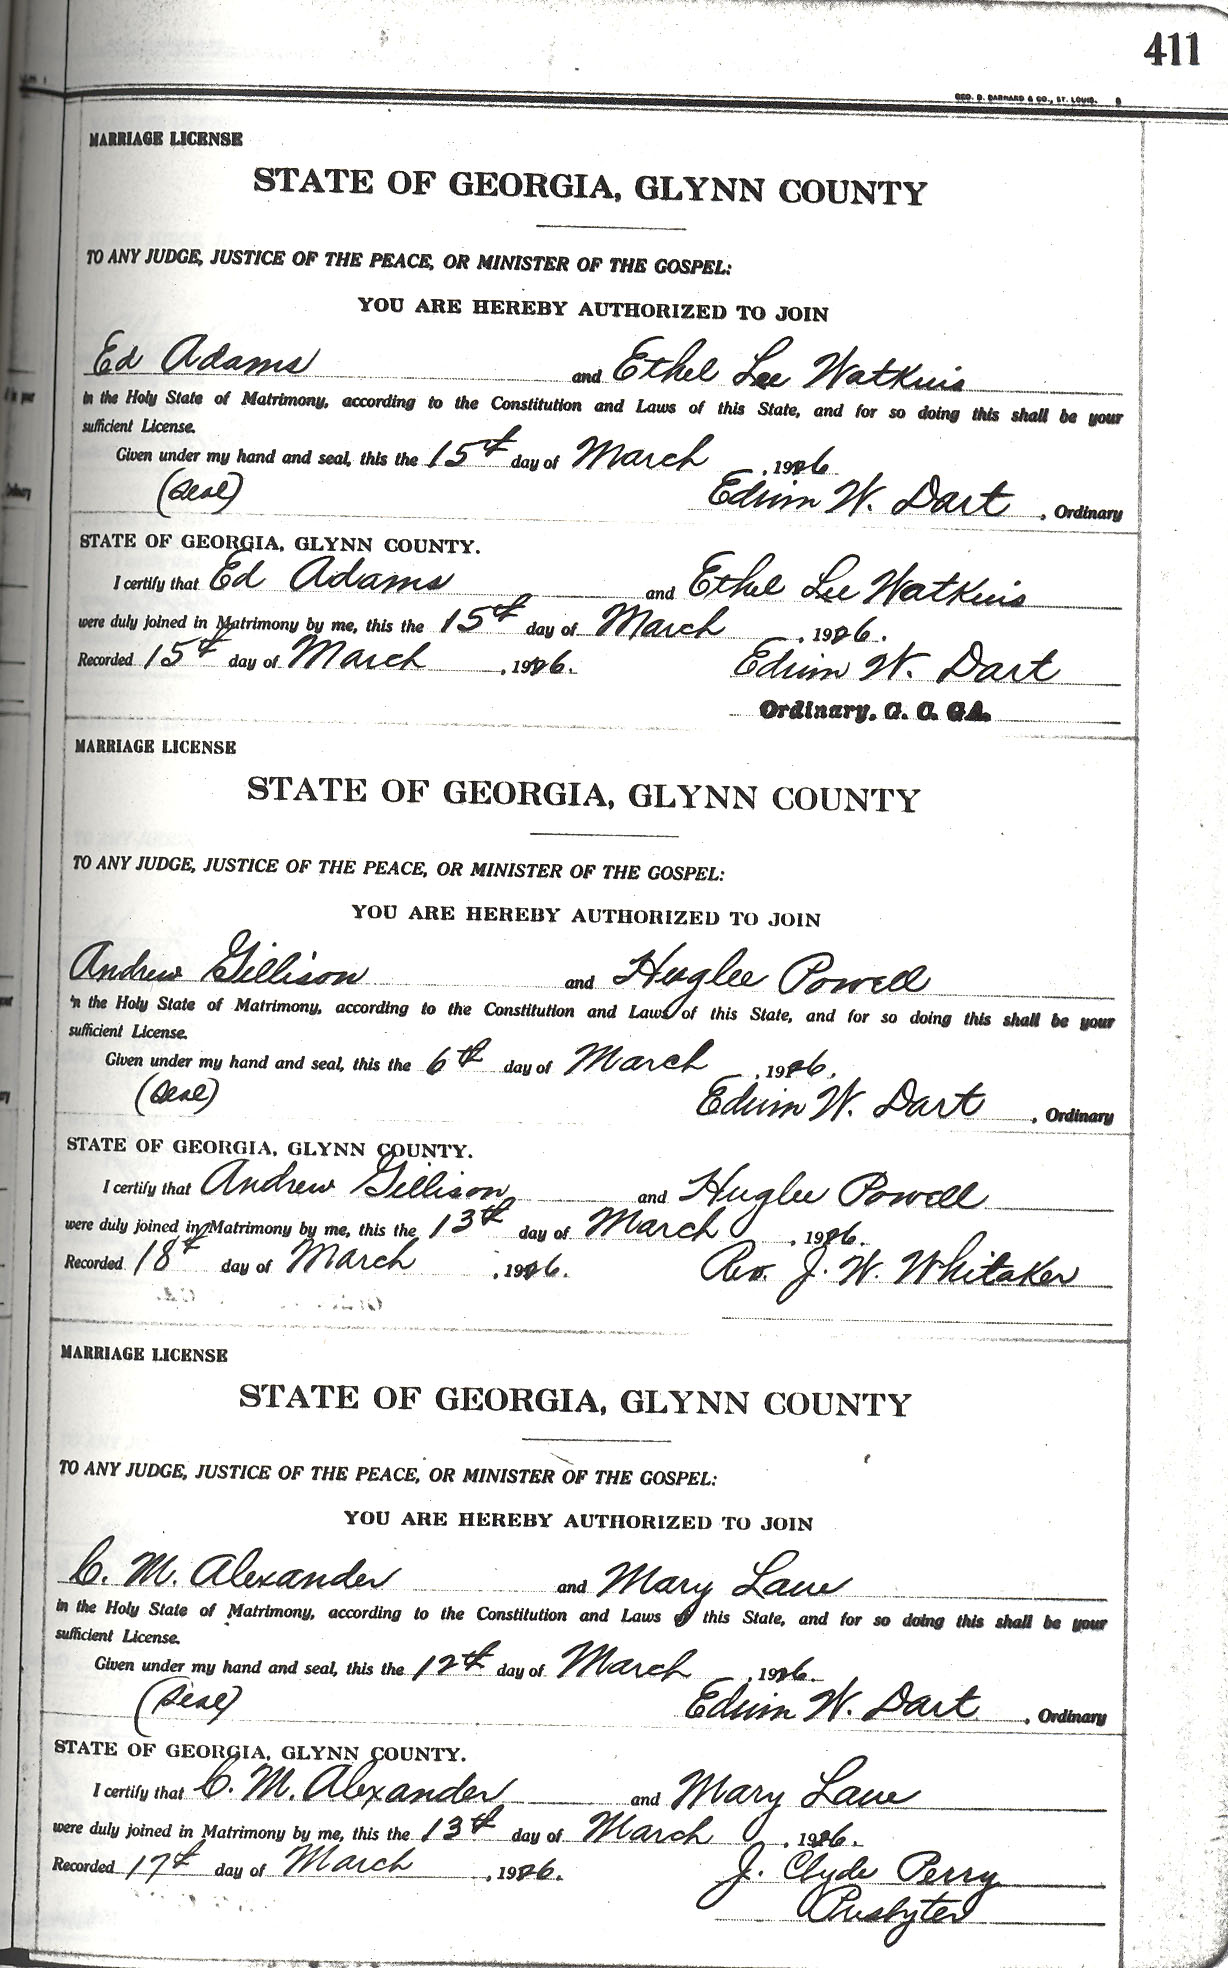 411
GEO. D. BARNARD & CO., ST. LOUIS.
MARRIAGE LICENSE
STATE OF GEORGIA, GLYNN COUNTY
TO ANY JUDGE, JUSTICE OF THE PEACE, OR MINISTER OF THE GOSPEL:
YOU ARE HEREBY AUTHORIZED TO JOIN
Ed Adams and Ethel Lee Watkins
in the Holy State of Matrimony, according to the Constitution and Laws of this State, and for so doing this shall be your
sufficient License.
Given under my hand and seal, this the 15th day of March, 1926
(Seal) Edwin W. Dart, Ordinary
STATE OF GEORGIA, GLYNN COUNTY.
I certify that Ed Adams and Ethel Lee Watkins
were duly joined in Matrimony by me, this the 15th day of March, 1926.
Recorded 15th day of March, 1926. Edwin W. Dart
Ordinary, G. C. GA.
MARRIAGE LICENSE
STATE OF GEORGIA, GLYNN COUNTY
TO ANY JUDGE, JUSTICE OF THE PEACE, OR MINISTER OF THE GOSPEL:
YOU ARE HEREBY AUTHORIZED TO JOIN
Andrew Gillison and Huglee Powell
in the Holy State of Matrimony, according to the Constitution and Laws of this State, and for so doing this shall be your
sufficient License.
Given under my hand and seal, this the 6th day of March, 1926.
(Seal) Edwin W. Dart, Ordinary
STATE OF GEORGIA, GLYNN COUNTY.
I certify that Andrew Gillison and Huglee Powell
were duly joined in Matrimony by me, this the 13th day of March, 1926.
Recorded 18th day of March, 1926. Rev. J. W. Whitaker
MARRIAGE LICENSE
STATE OF GEORGIA, GLYNN COUNTY
TO ANY JUDGE, JUSTICE OF THE PEACE, OR MINISTER OF THE GOSPEL:
YOU ARE HEREBY AUTHORIZED TO JOIN
C. M. Alexander and Mary Lane
in the Holy State of Matrimony, according to the Constitution and Laws of this State, and for so doing this shall be your
sufficient License.
Given under my hand and seal, this the 12th day of March, 1926.
(Seal) Edwin W. Dart, Ordinary
STATE OF GEORGIA, GLYNN COUNTY.
I certify that C. M. Alexander and Mary Lane
were duly joined in Matrimony by me, this the 13th day of March, 1926.
Recorded 17th day of March, 1926. J. Clyde Perry
Presbyter